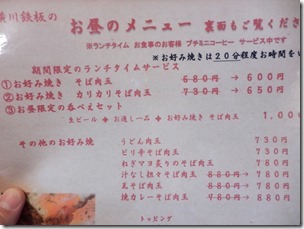 鉄板の お昼のメニュー 裏面もご覧くださ
※ランチタイム お食事のお客様 プチミニコーヒー サービス中です
※お好み焼きは20分程度お時間を
期間限定のランチタイムサービス
①お好み焼き そば肉玉 680円 → 600円
②お好み焼き カリカリそば肉玉 730円 → 650円
③お昼限定の
生ビール + お通し一品 + お好み焼き そば肉玉 1,00
その他のお好み焼 うどん肉玉 730円
ピリ辛そば肉玉 730円
ねぎマヨ炙りのそば肉玉 780円
汁なし担々そば肉玉 880円 → 780円
瓦そば肉玉 880円 → 780円
焼カレーそば肉玉 880円 → 780円
トッピング